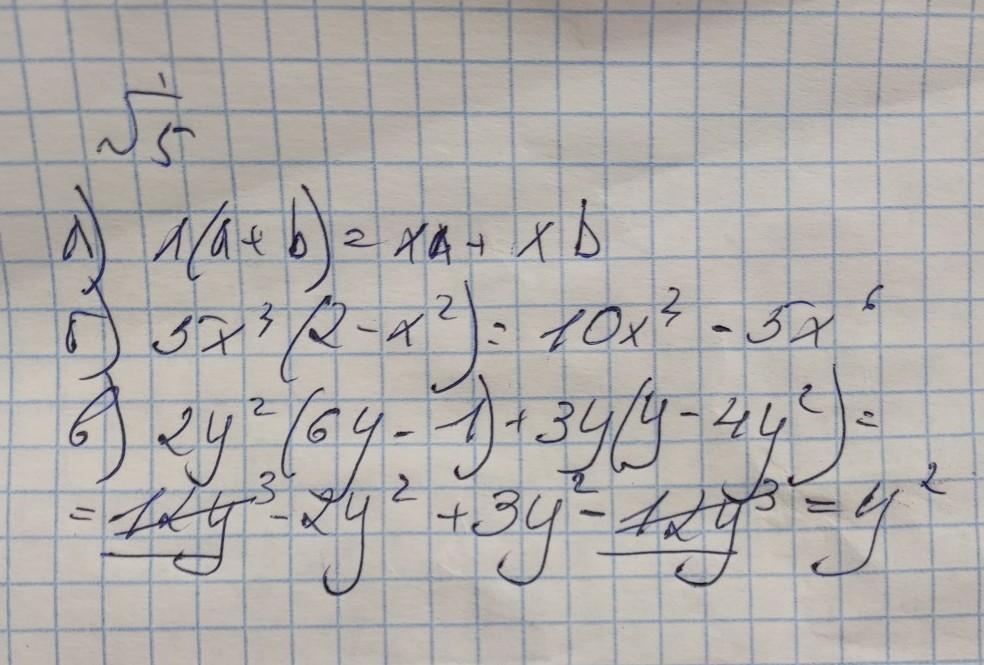 √5
а) x(a + b) = xa + xb
б) 5x³(2 - x²) = 10x³ - 5x⁶
в) 2y²(6y - 1) + 3y(y - 4y²) =
= 12y³ - 2y² + 3y² - 12y³ = y²